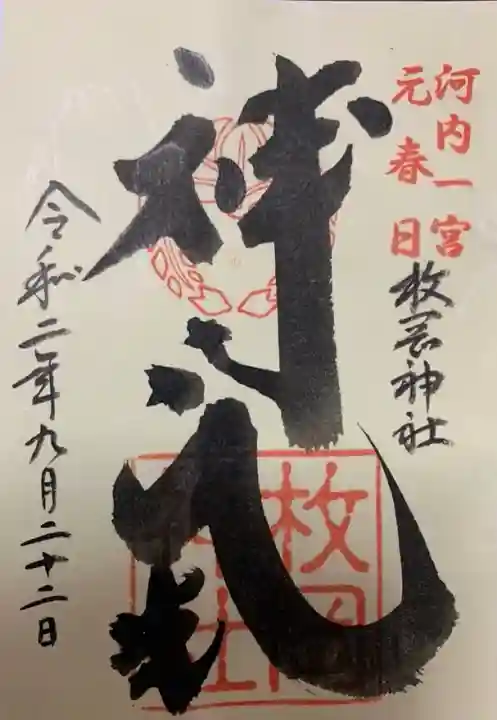 河内一宮
元春日
枚岡神社
枚岡
神社
令和二年九月二十二日